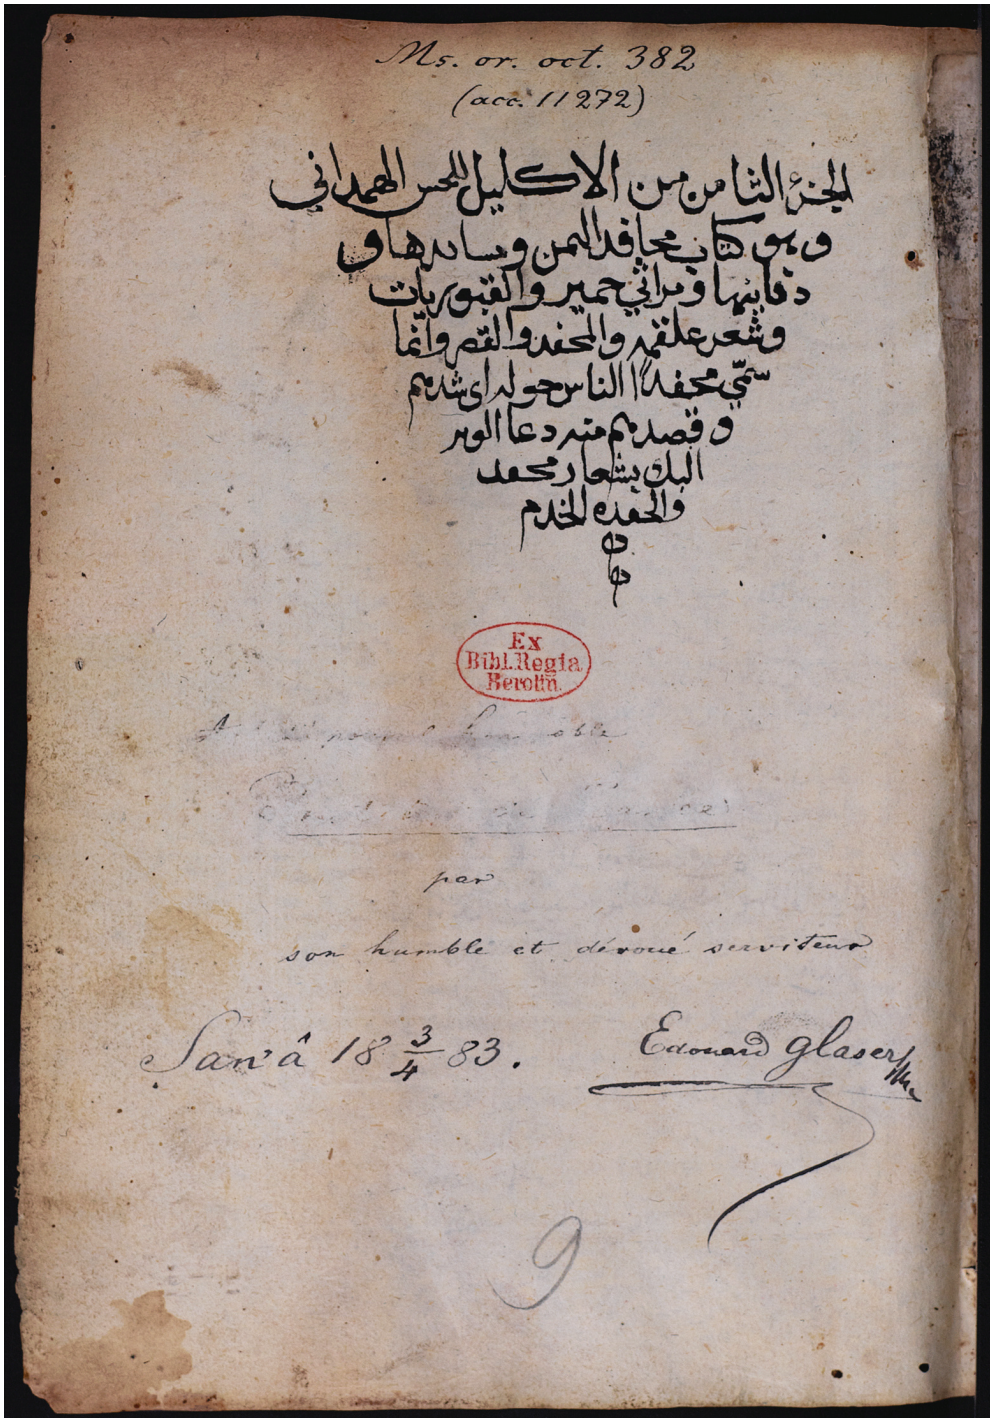 Ms. or. oct. 382
(acc. 11272)
الجزء الثامن من الاكليل للحسن الهمداني
وهو كتاب محافد اليمن ومساندها و
دفاينها ومراثي حمير والقبوريات
وشعر علقمه والمحفد والقصر وانّما
سمّي محفدًا الناس حوله اى شدهم
وقصدهم منه دعا الوتر
اليك بشعار محفد
والحفده الخدم
Ex
Bibl. Regia
Berolin.
par
son humble et dévoué serviteur
San'â 18 3/4 83. Edouard Glaser
9